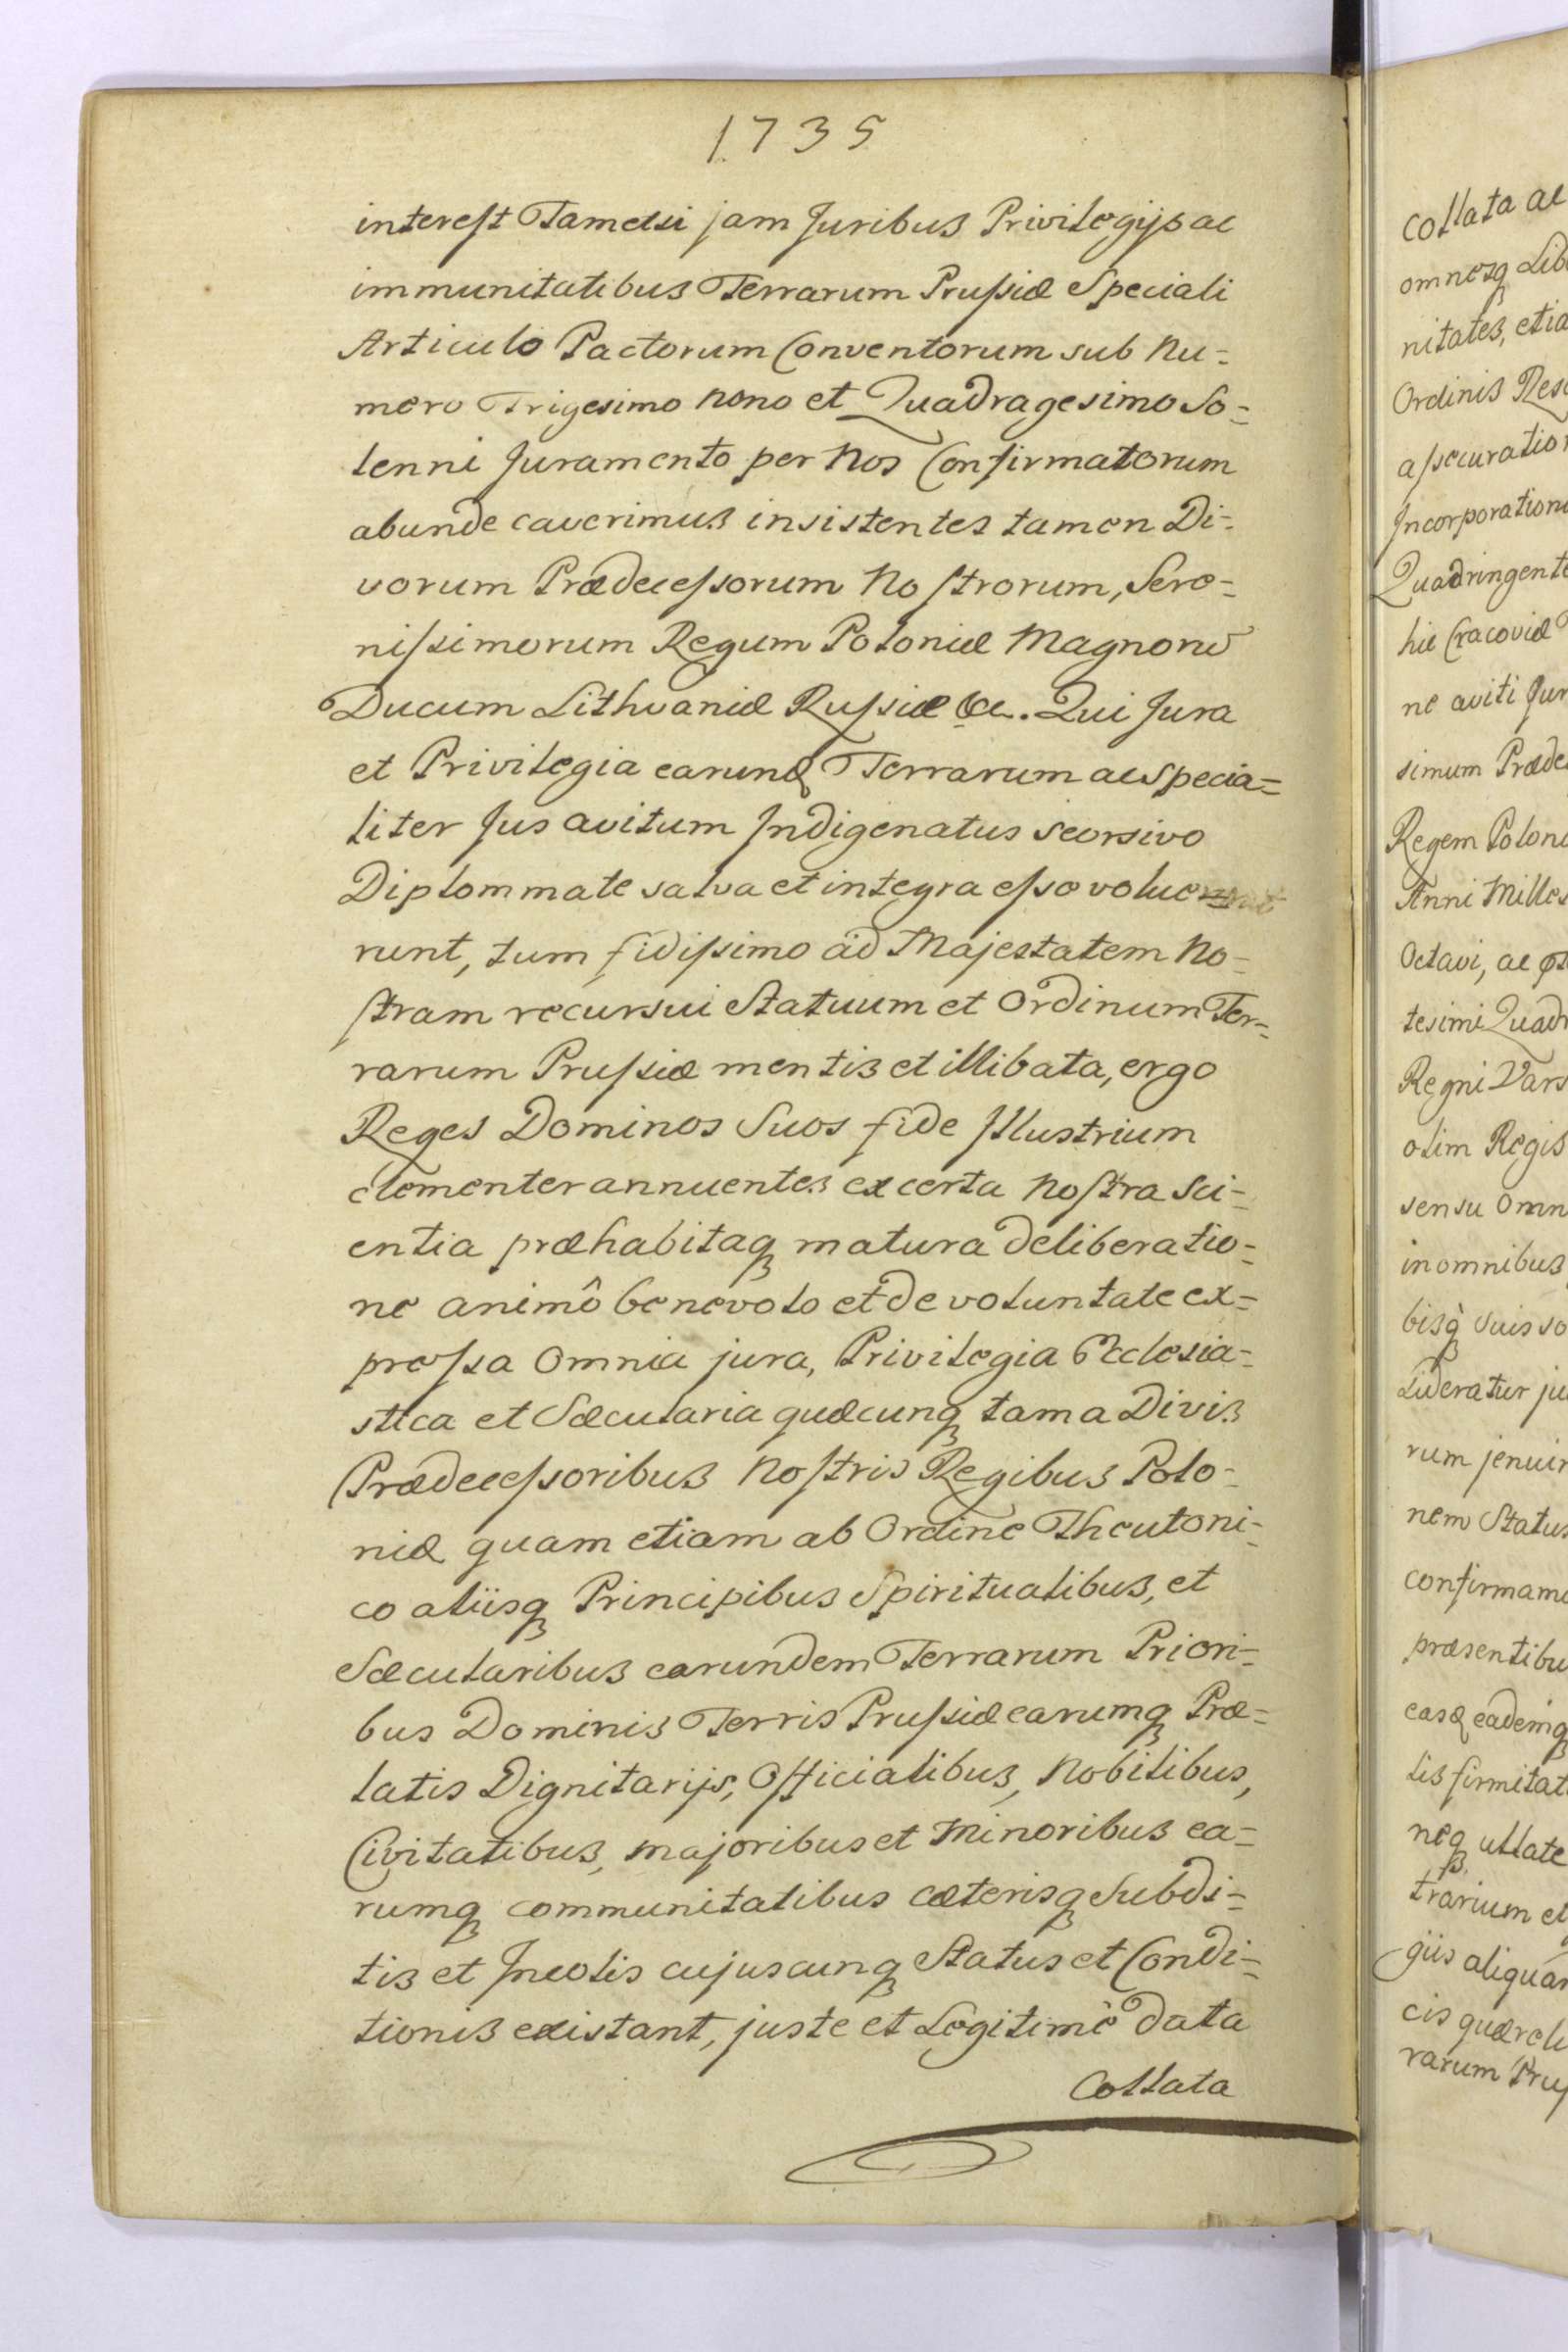 1735
interest Tametsi jam Juribus Privilegijs ac
immunitatibus Terrarum Prussiæ Speciali
Articulo Pactorum Conventorum sub Nu=
mero Trigesimo nono et Quadragesimo So=
lenni Juramento per Nos Confirmatorum
abunde caverimus insistentes tamen Di=
vorum Prædecessorum Nostrorum, Sere=
nissimorum Regum Poloniæ Magnorũ
Ducum Lithvaniæ Russiæ &c. Qui Jura
et Privilegia earund Terrarum ac specia=
liter Jus avitum Indigenatus seorsivo
Diplommate salva et integra esse volue
runt, tum fidissimo ad Majestatem No=
stram recursui Statuum et Ordinum Ter=
rarum Prussiæ mentis et illibata, ergo
Reges Dominos Suos fide Illustrium
clementer annuentes ex certa Nostra Sci=
entia præhabitaq matura deliberatio=
ne animô benevolo et de voluntate ex=
pressa Omnia jura, Privilegia Ecclesia=
stica et Sæcularia quæcunq tam a Divis
Prædecessoribus Nostris Regibus Polo=
niæ quam etiam ab Ordine Theutoni=
co aliisq Principibus Spiritualibus, et
Sæcularibus earundem Terrarum Priori=
bus Dominis Terris Prussiæ earumq Præ=
latis Dignitarijs, Officialibus, Nobilibus,
Civitatibus, majoribus et Minoribus ea=
rumq communitatibus cæterisq Subdi=
tis et Incolis cujuscunq Status et Condi=
tionis existant, juste et Legitimè data
Collata
collata ac
omnesq Lib
nitates, etia
Ordinis Res
assecuration
Incorporation
Quadringent
hie Cracoviæ
ne aviti Jur
simum Præde
Regem Polon
Anni Milles
Octavi, ac
tesimi Quadr
Regni Vars
olim Regis
sensu Omn
in omnibus
bisq suis
sideratur ju
rum
nem Status
confirmam
præsentibu
easq eademq
lis firmitat
neq ullate
trarium et
giis aliquam
cis quærel
rarum Prus